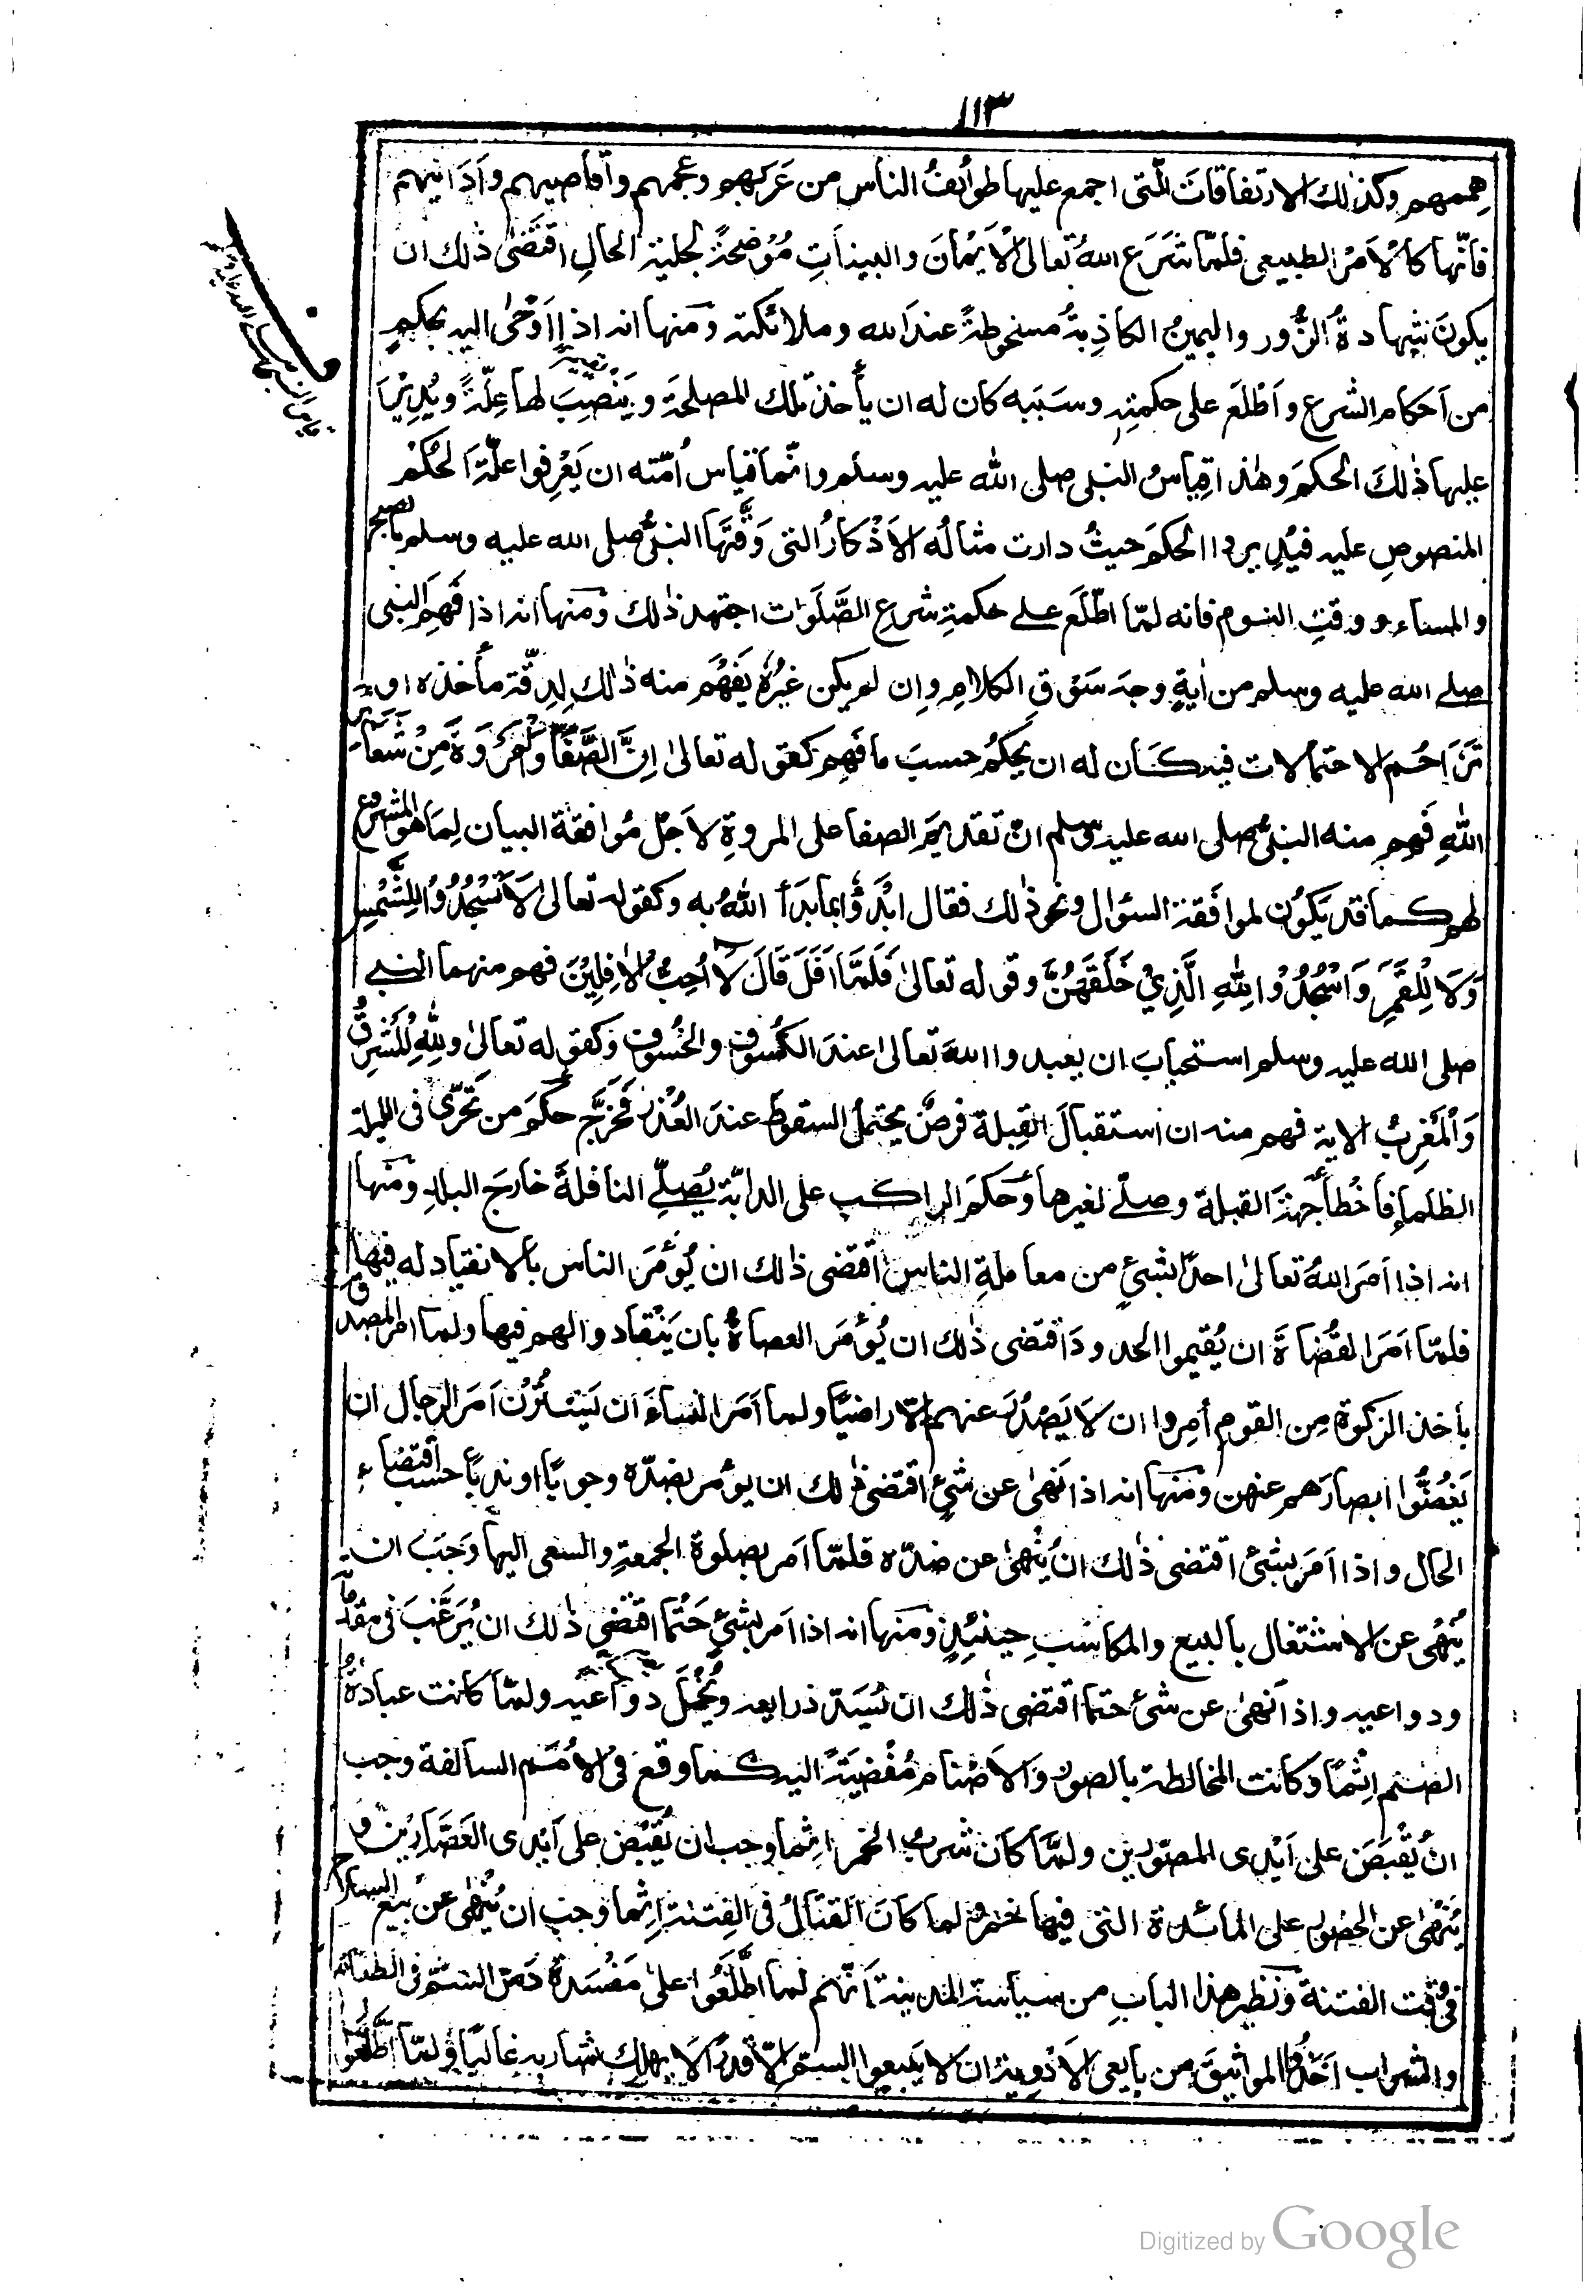 ١١٣
هِممهم وكذلك الارتفاقات التى اجمع عليها طوائفُ الناس من عَرَبهم وعجمهم وأقاصيهم وأدانيهم
فانّها كالأمر الطبيعى فلمّا شَرَع اللهُ تعالى الأيمانَ والبيناتِ مُوْضِحةً لجلية الحالِ اقتضى ذلك ان
يكونَ شهادةُ الزُّور واليمينُ الكاذِبةُ مسخوطةً عند الله وملائكته ومنها انه اذا اوحىٰ اليه بحكمٍ
من اَحكام الشرع واطلَعَ على حكمتِه وسَبَبِه كان له ان يأخذ تلك المصلحة ويَنْصِبَ لها عِلّةً ويُدِيْرَ
عليها ذٰلك الحكمَ وهٰذا قياسُ النبى صلى الله عليه وسلم وانّما قياس اُمّته ان يَعْرِفوا علّةَ الحُكْم
المنصوصِ عليه فيُدِيروا الحكمَ حيثُ دارت مثالُه الاَذْكارُ التى وَقَّتَها النبىُّ صلى الله عليه وسلم بالصبح
والمساء ووقتِ النوم فانه لمّا اطّلَع على حكمةِ شرع الصَّلَوات اجتهد ذٰلك ومنها انه اذا فَهِمَ النبى
صلى الله عليه وسلم من اٰيةٍ وجهَ سَوْقِ الكلامِ وان لم يكن غيرُهٗ يَفهَم منه ذٰلك لِدِقّة مأخذه او
تَزَاحُمِ الاحتمالات فيه كان له ان يحكمُ حسبَ ما فَهِمَ كقوله تعالىٰ اِنَّ الصَّفَا وَالْمَرْوَةَ مِنْ شَعَائِرِ
اللهِ فَهِم منه النبىُّ صلى الله عليه وسلم انّ تقديمَ الصفا على المروةِ لاَجْل مُوافقة البيان لِمَا هو المشروع
لهم كما قد يَكوُن لموافقة السؤال ونحو ذٰلك فقال ابْدَؤُا بما بَدَأ اللهُ به وكقوله تعالىٰ لَا تَسْجُدُوْا لِلشَّمْسِ
وَلَا لِلْقَمَرِ وَاسْجُدُوْا لِلّٰهِ الَّذِىْ خَلَقَهُنَّ وقوله تعالىٰ فَلَمَّا اَفَلَ قَالَ لَا اُحِبُّ الْاٰفِلِيْنَ فهم منهما النبى
صلى الله عليه وسلم استحبابَ ان يعبدوا اللهَ تعالىٰ عند الكُسوفِ والخُسوفِ وكقوله تعالىٰ ولِلّٰهِ الْمَشرِقُ
وَالْمَغرِبُ الاية فهم منه ان استقبالَ القِبلةِ فرضٌ يحتمل السقوطَ عند العُذْرِ فَخَرَّج حكمَ من تَحَرّٰى فى الليلة
الظلماء فاخْطأ جِهةَ القبلة وصلّى لغيرها وحكمَ الراكب على الدابّة يُصلّى النافلةَ خارجَ البلدِ ومنها
انه اذا امَرَ اللهُ تعالىٰ احدًا بشئٍ من معاملةِ الناس اقتضى ذٰلك ان يُؤمَر الناس بالانقياد له فيها
فلمّا امَرَ القُضاةَ ان يُقيموا الحدودَ اقتضى ذٰلك ان يُؤمَر العصاةُ بان يَنْقادوا لهم فيها ولما امر المصدق
بأخذ الزكوة مِن القومِ اُمِروا ان لَا يَصْدُرَ عنهم الّا راضيًا ولما اَمَر النساءَ ان يَستَتِرْنَ اَمَر الرجال ان
يَغُضُّوا ابصارَهم عنهن ومنها انه اذا نَهىٰ عن شئٍ اقتضى ذٰلك ان يؤمر بضدّه وجوبًا او ندبًا حسبَ اقتضاء
الحال واذا امَر بشئ اقتضى ذٰلك ان يُنهىٰ عن ضدّه فلمّا اَمر بصلوة الجمعةِ والسعى اليها وَجَبَ ان
يُنهىٰ عن الاشتغال بالبيع والمكاسب حِينئِذٍ ومنها انه اذا امر بشئٍ حَتْمًا اقتضى ذٰلك ان يُرَغَّبَ فى مقدماته
ودواعيه واذا نهىٰ عن شئ حتمًا اقتضى ذٰلك ان يُسَدّ ذرايعه ويُخْمَلَ دواعيه ولمّا كانت عبادةُ
الصنم اِثْمًا وكانت المخالطة بالصور وَالاَصْنام مُفْضِيَةً اليه كما وقع فى الاُمَم السالفة وجب
ان يُقْبَضَ على اَيْدِى المصوّرين ولمّا كان شربُ الخمر اِثما وجب ان يُقبَض على اَيْدِى العَصَّارِين و
يُنْهٰى عن الحضور على المائدة التى فيها خمرٌ ولما كان القتالُ فى الفِتنة اِثما وجب ان يُنهٰى عن بيع السلاح
فى وقت الفتنة ونظير هذا البابِ من سياسة المدينة اَنّهم لما اطَّلَعُوا علىٰ مَفْسَدةِ دَسّ السّمّ فى الطعام
والشراب اَخَذُوا المواثيقَ من بايعى الاَدْوِيةِ ان لا يَبيعوا السمّ الّا قدرًا لا يهلك شاربه غالبًا ولمّا اطَّلَعُوا
Digitized by Google